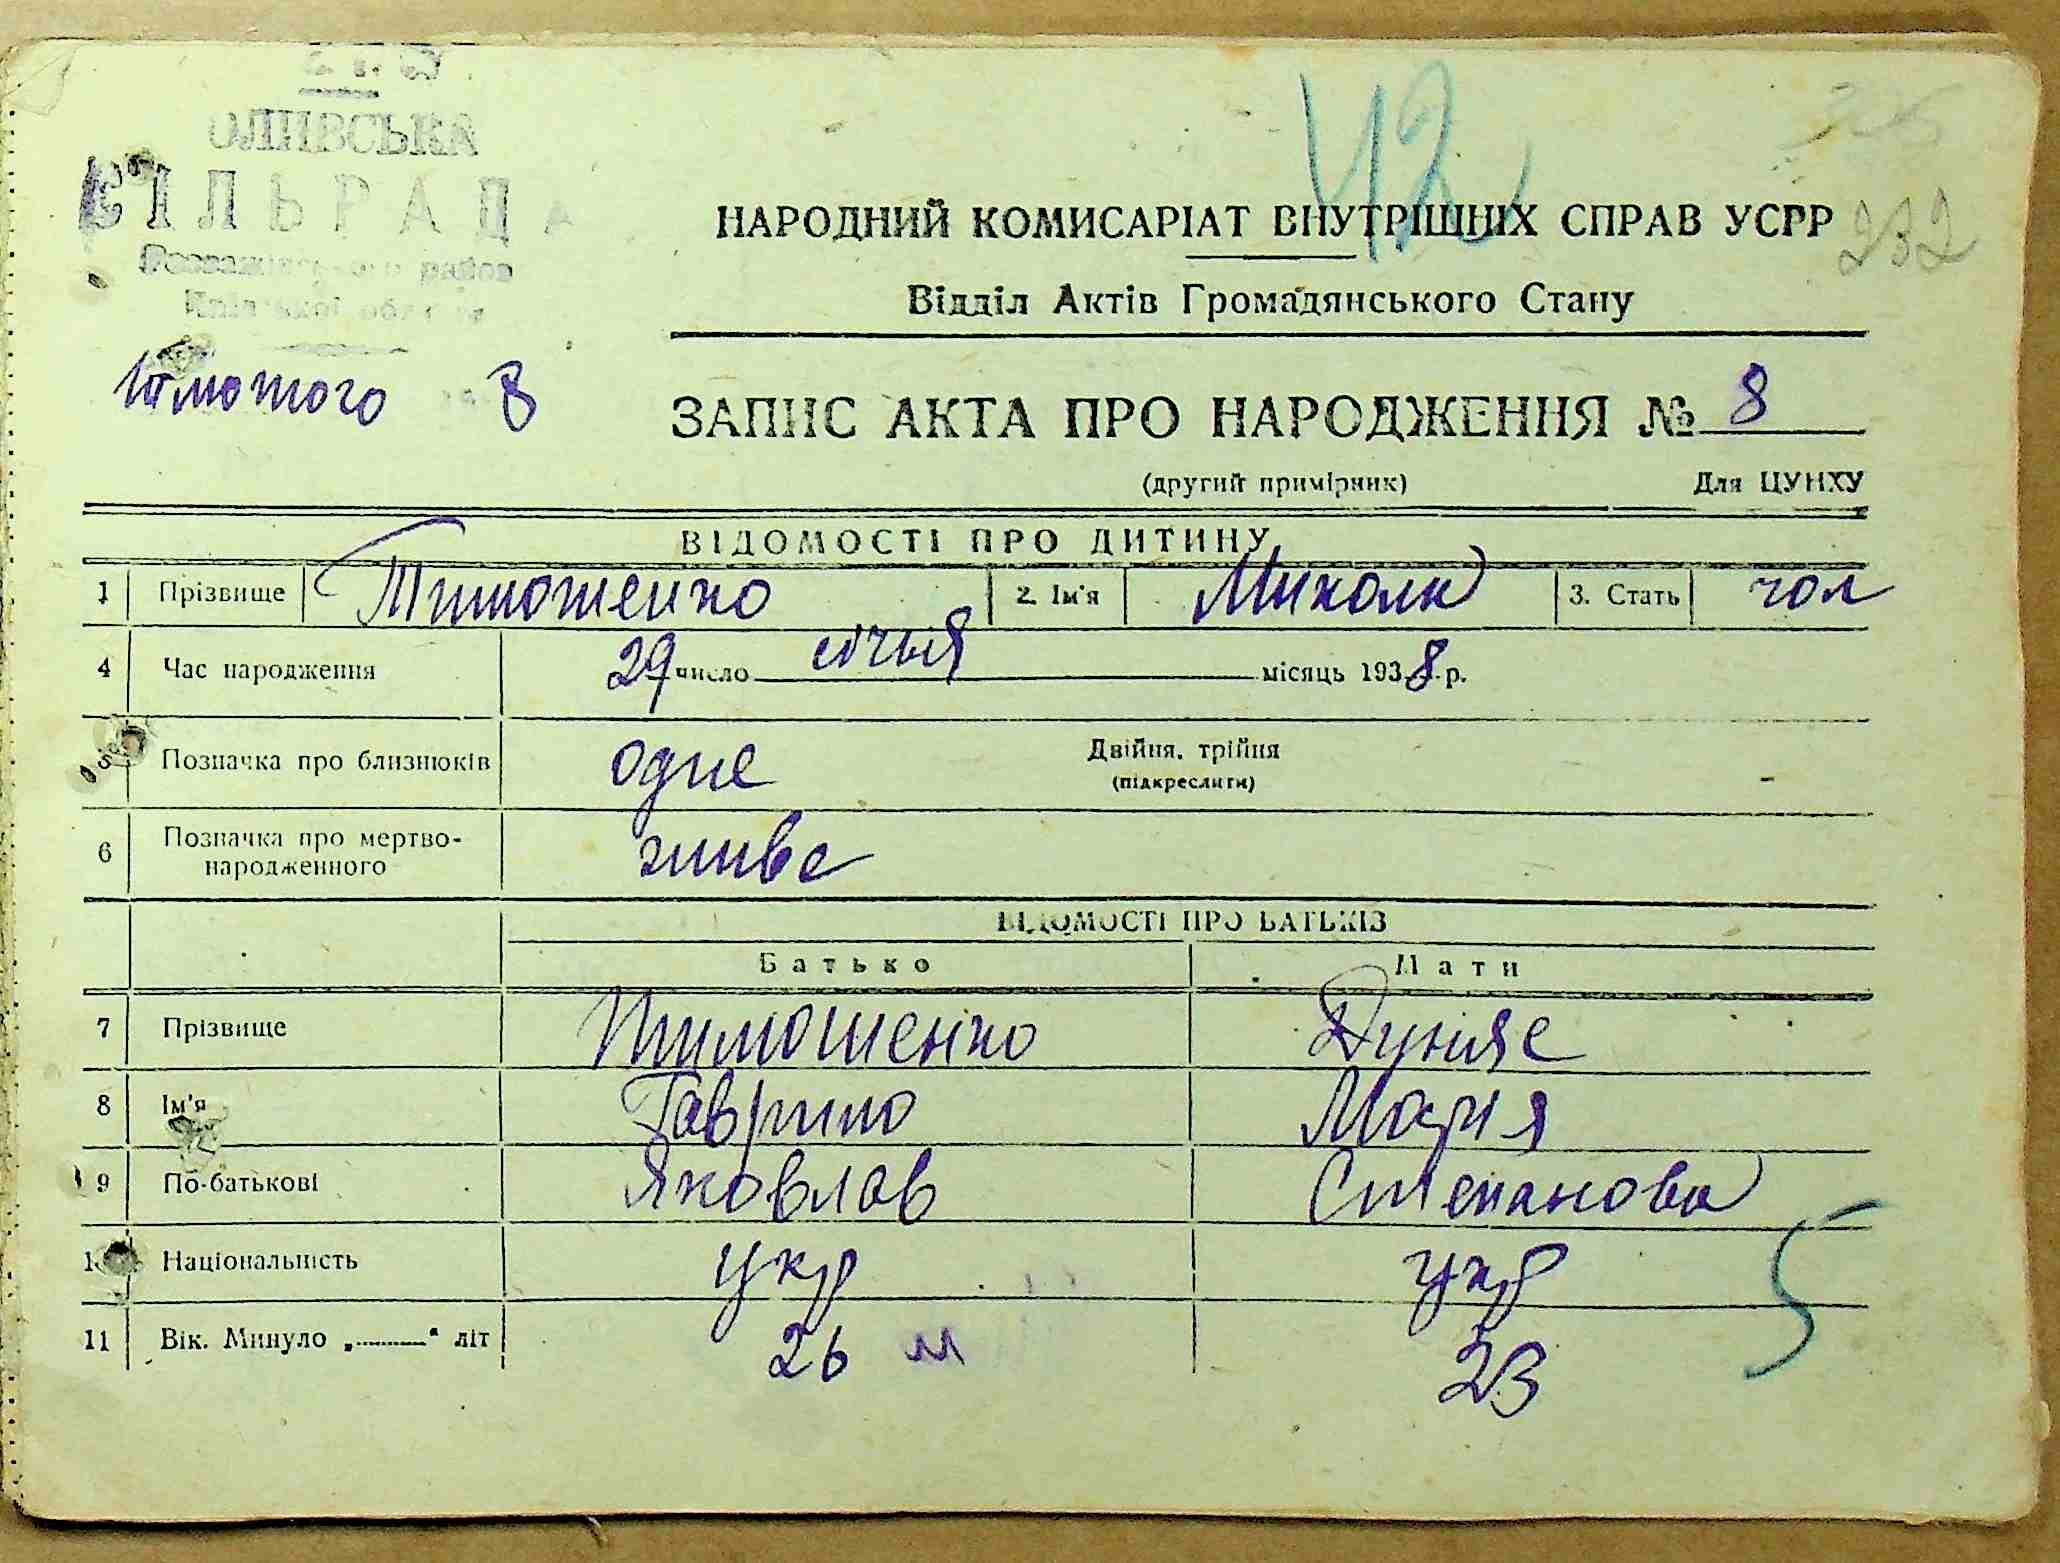 СІЛЬРАДА
району
42
232
НАРОДНИЙ КОМИСАРІАТ ВНУТРІШНІХ СПРАВ УСРР
Відділ Актів Громадянського Стану
лютого 8
ЗАПИС АКТА ПРО НАРОДЖЕННЯ № 8
(другий примірник) Для ЦУНХУ
ВІДОМОСТІ ПРО ДИТИНУ
1 Прізвище Тимошенко 2. Ім'я Микола 3. Стать чол
4 Час народження 29 число січня місяць 1938 р.
5 Позначка про близнюків одне Двійня, трійня
(підкреслити)
6 Позначка про мертво-
народженного живе
ВІДОМОСТІ ПРО БАТЬКІВ
Батько Мати
7 Прізвище Тимошенко
8 Ім'я Гаврило Марія
9 По-батькові Яковлев Степанова
10 Національність укр укр
5
11 Вік. Минуло „..........“ літ 26 23